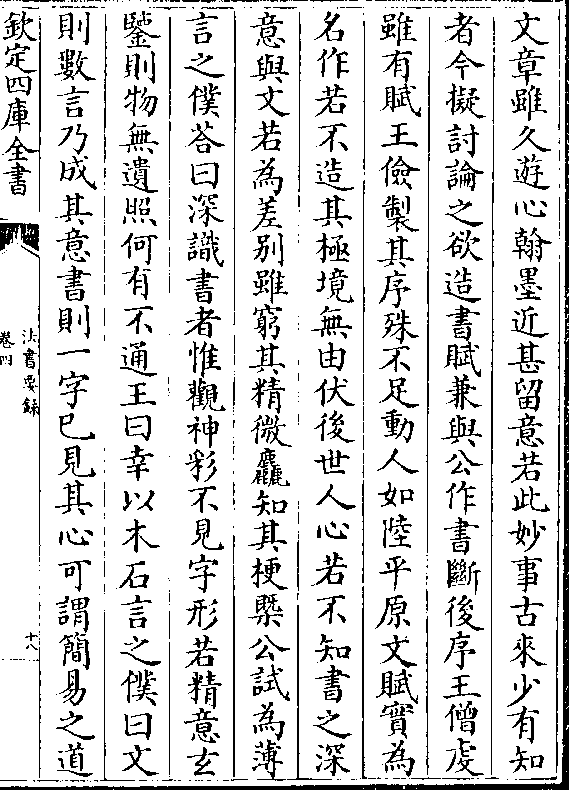 文章雖久遊心翰墨近甚留意若此妙事古來少有知
者今擬討論之欲造書賦兼與公作書斷後序王僧虔
雖有賦王儉製其序殊不足動人如陸平原文賦實為
名作若不造其極境無由伏後世人心若不知書之深
意與文若為差别雖窮其精微麤知其梗槩公試為薄
言之僕荅曰深識書者惟觀神彩不見字形若精意玄
鑒則物無遺照何有不通王曰幸以木石言之僕曰文
則數言乃成其意書則一字已見其心可謂簡易之道
欽定四庫全書
法書要録
卷四
十八